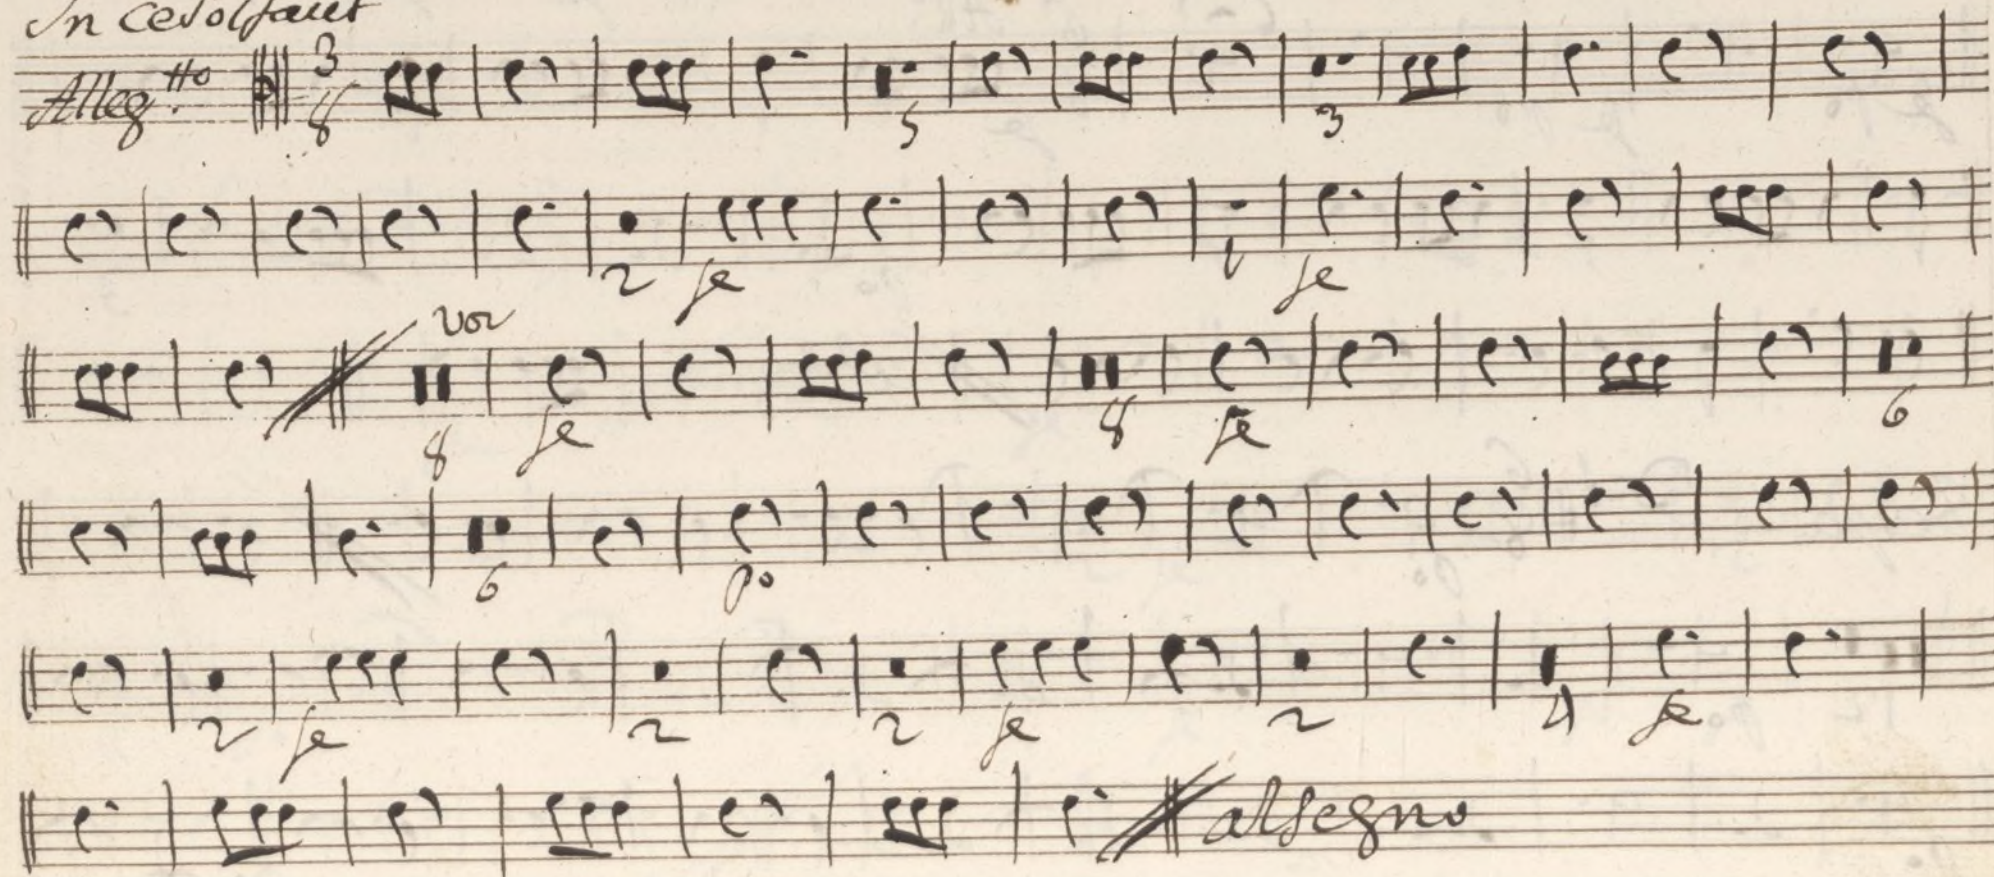 In Cesolfaut
Alleg.tto 3 8 5 3
2 fe 1 fe
voz
8 fe 8 fe 6
6 po
2 fe 2 2 fe 2 4 fe
al segno